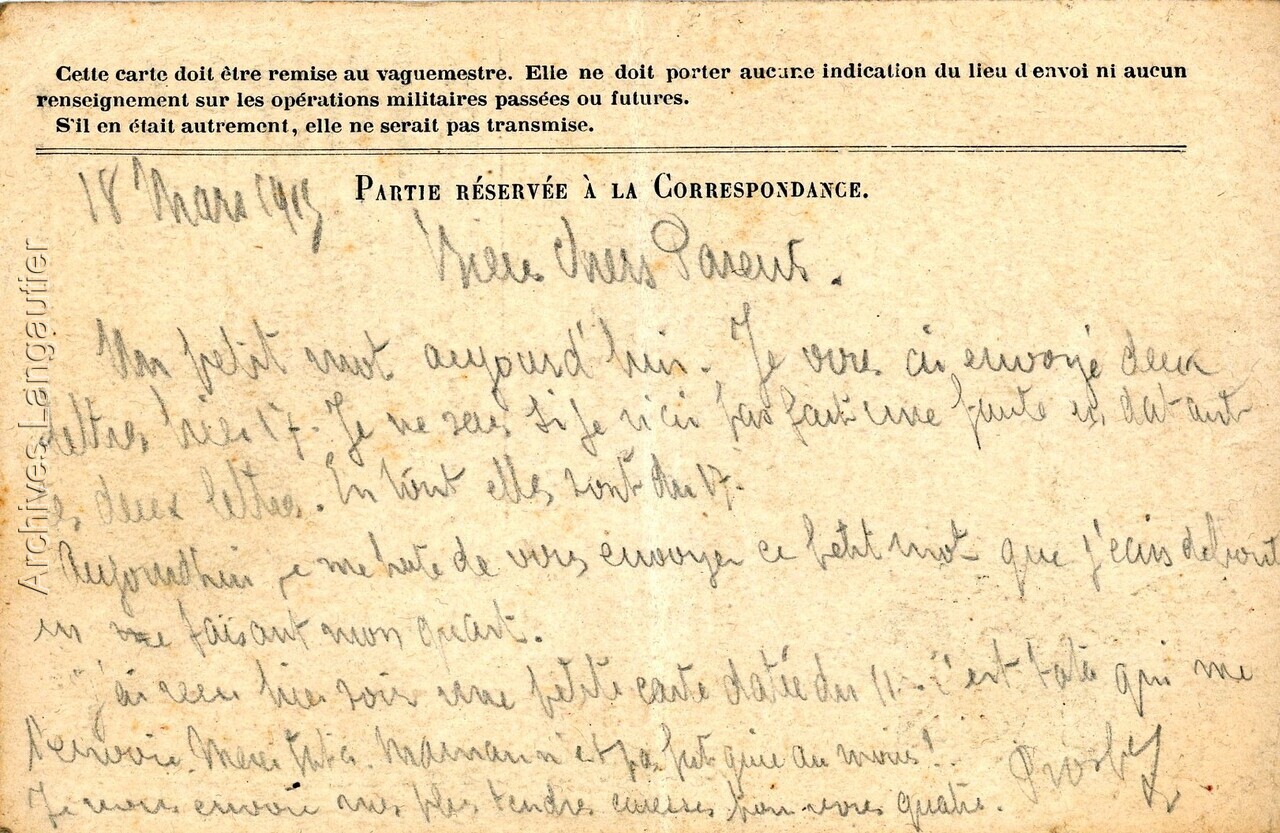 Cette carte doit être remise au vaguemestre. Elle ne doit porter aucune indication du lieu d envoi ni aucun
renseignement sur les opérations militaires passées ou futures.
S'il en était autrement, elle ne serait pas transmise.
18 Mars 1915
PARTIE RÉSERVÉE À LA CORRESPONDANCE.
Mes chers Parents.
Un petit mot aujourd'hui. Je vous ai envoyé deux
lettres hier 17. Je ne sais si je n'ai pas fait une faute en datant
les deux lettres. En tout elles sont du 17.
Aujourd'hui je me hate de vous envoyer ce petit mot que j'écris debout
en me faisant mon quart.
j'ai reçu hier soir une petite carte datée du 11. c'est tata qui me
l'envoie. Maman n'est pas fatiguée au moins!
Je vous envoie mes plus tendres caresses pour vous quatre.
Archives Langautier